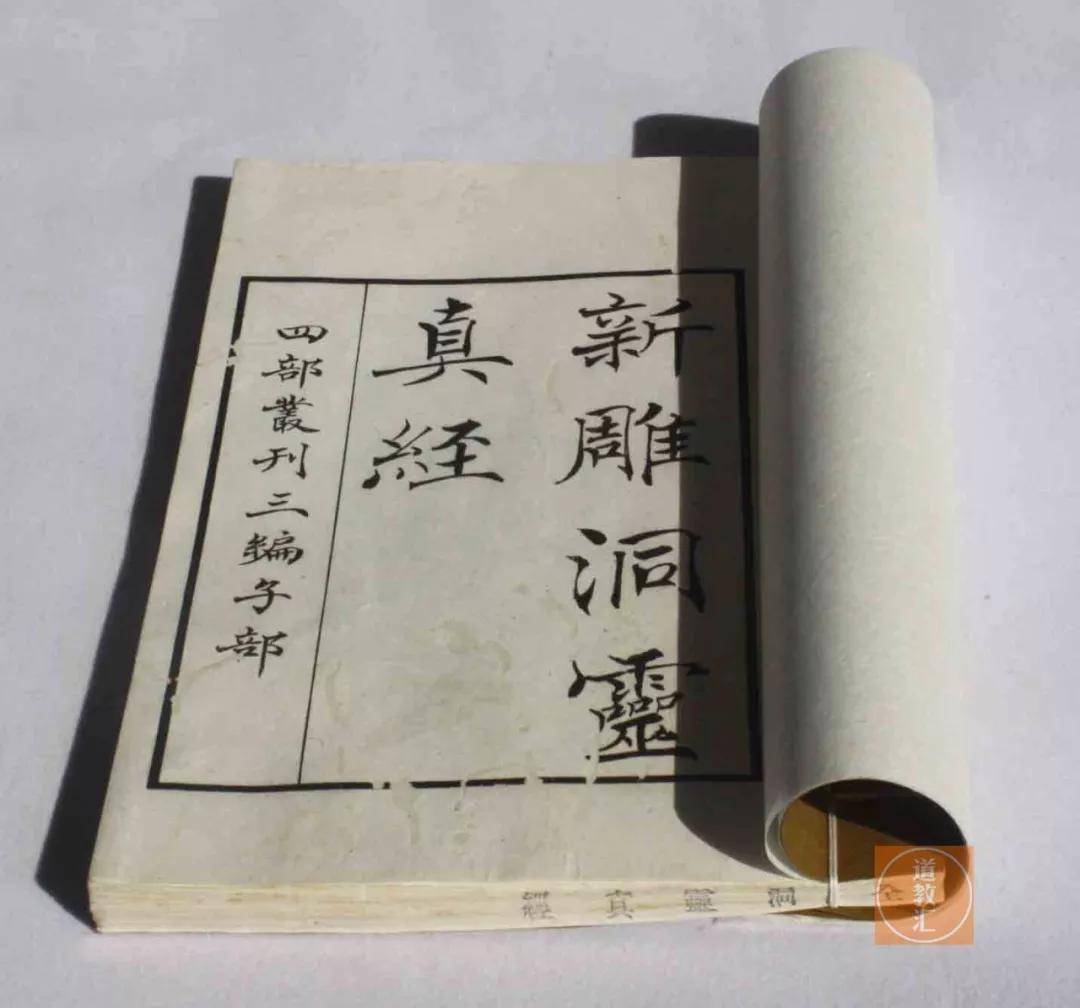 新雕洞靈
真経
四部叢刊三編子部
全 洞靈真經
道教汇